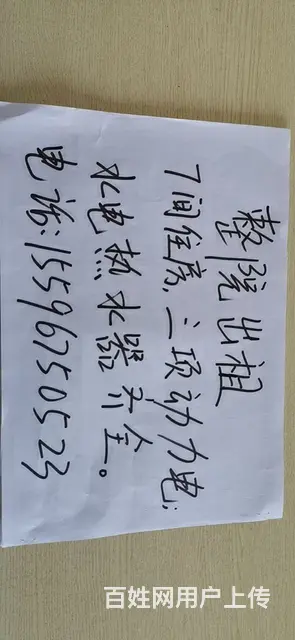 整院出租
7间住房,三项动力电;
水电热水器齐全。
电话:15596750523
百姓网用户上传